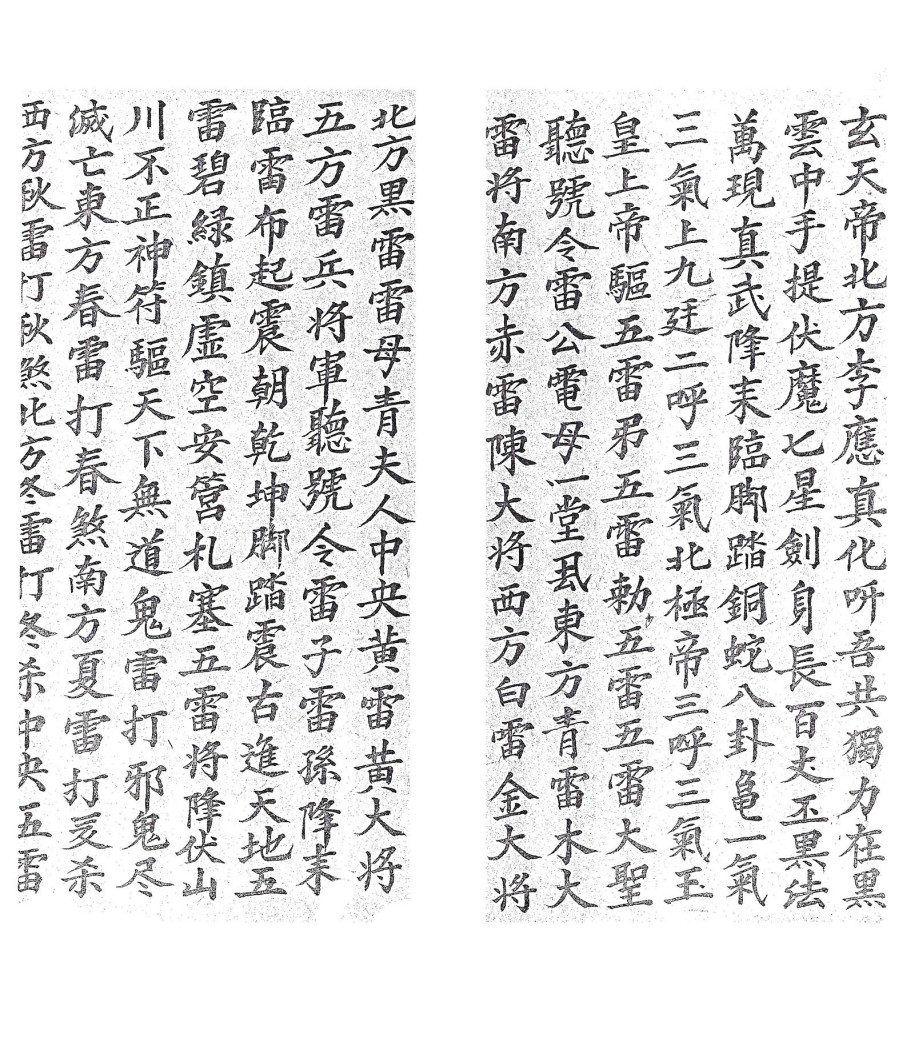 玄天帝北方李應真化呀吾共獨力在黑
雲中手提伏魔七星劍身長百丈丕黑法
萬現真武降来臨脚踏銅蛇八卦龟一氣
三氣上九廷二呼三氣北極帝三呼三氣玉
皇上帝驅五雷弔五雷勅五雷五雷大聖
聽號令雷公電母一堂虱東方青雷木大
雷将南方赤雷陳大将西方白雷金大将
北方黑雷雷母青夫人中央黄雷黄大将
五方雷兵将軍聽號令雷子雷孫降耒
臨雷布起震朝乾坤脚踏震古進天地五
雷碧綠鎮虚空安营札塞五雷将降伏山
川不正神符驅天下無道鬼雷打邪鬼尽
滅亡東方春雷打春煞南方夏雷打夏杀
西方秋雷打秋煞北方冬雷打冬杀中央五雷